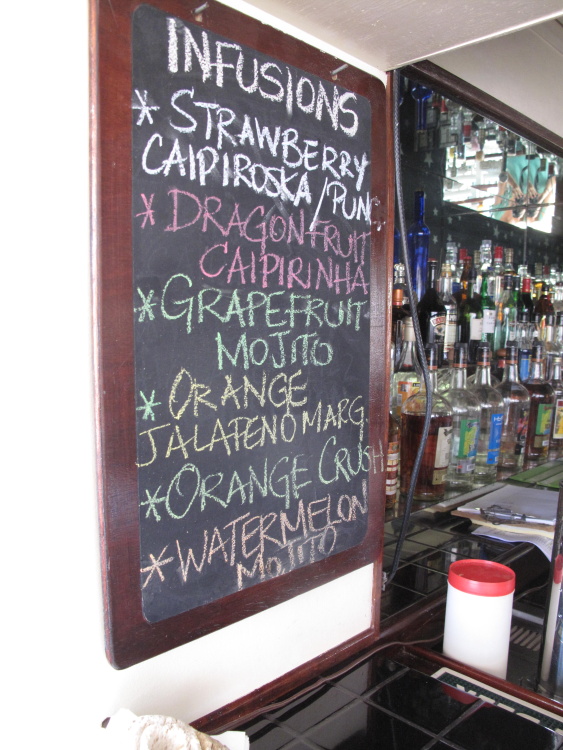 INFUSIONS
* STRAWBERRY
CAIPIROSKA/PUNCH
* DRAGONFRUIT
CAIPIRINHA
* GRAPEFRUIT
MOJITO
* ORANGE
JALAPENO MARG.
* ORANGE CRUSH
* WATERMELON
MOJITO